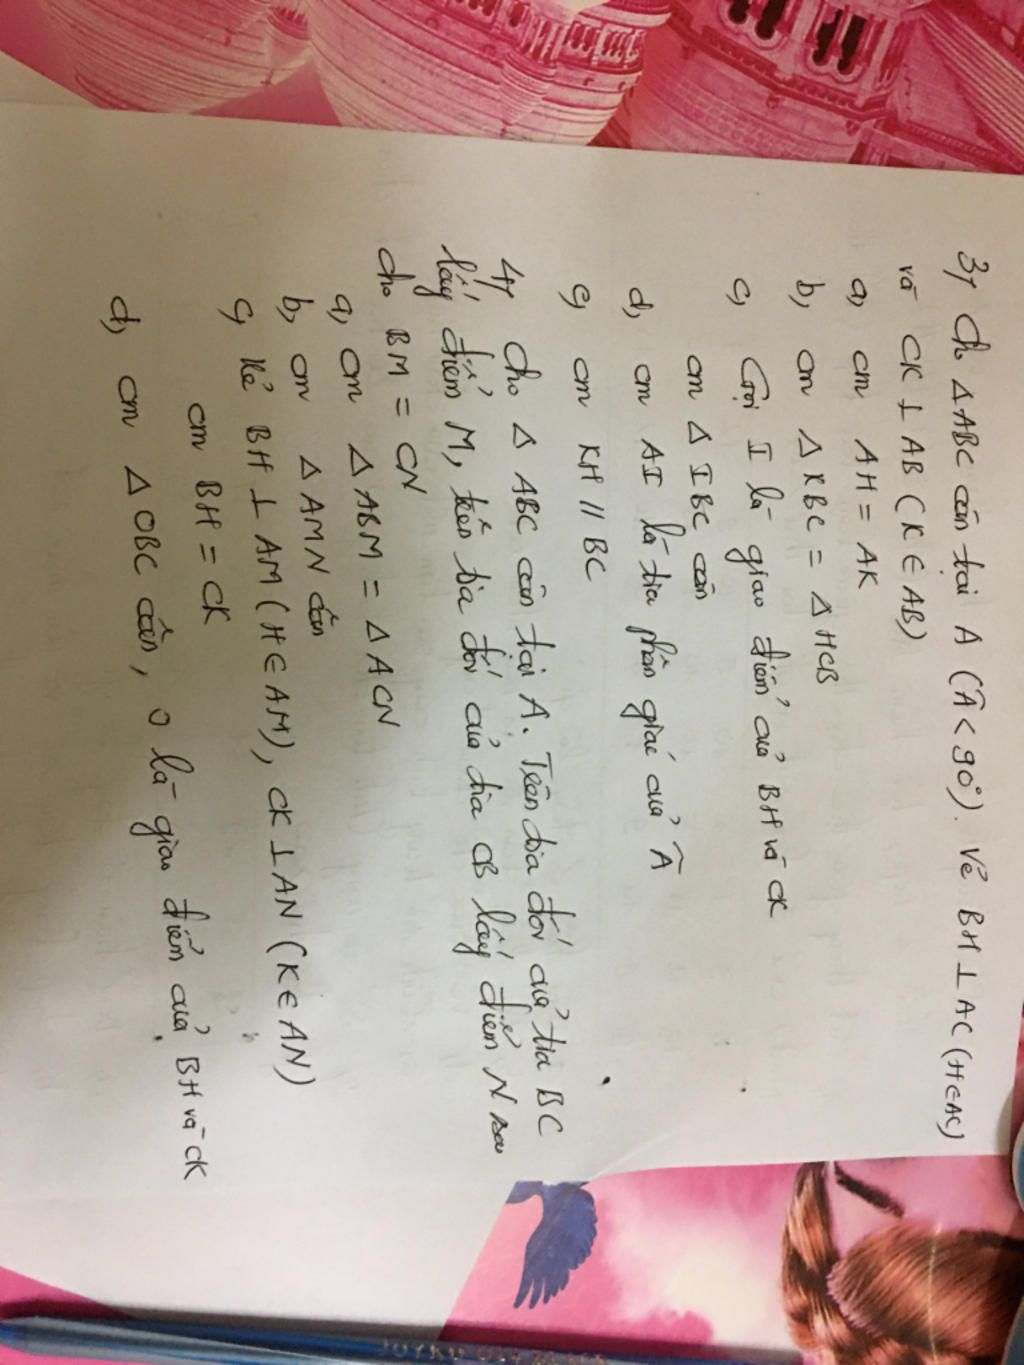 3, Cho △ABC cân tại A (Â < 90°). Vẽ BH ⊥ AC (H ∈ AC)
và CK ⊥ AB (K ∈ AB)
a, cm AH = AK
b, cm △KBC = △HCB
c, Gọi I là giao điểm của BH và CK
cm △IBC cân
d, cm AI là tia phân giác của Â
e, cm KH // BC
4, Cho △ABC cân tại A. Trên tia đối của tia BC
lấy điểm M, trên tia đối của tia CB lấy điểm N sao
cho BM = CN
a, cm △ABM = △ACN
b, cm △AMN cân
c, Kẻ BH ⊥ AM (H ∈ AM), CK ⊥ AN (K ∈ AN)
cm BH = CK
d, cm △OBC cân, O là giao điểm của BH và CK